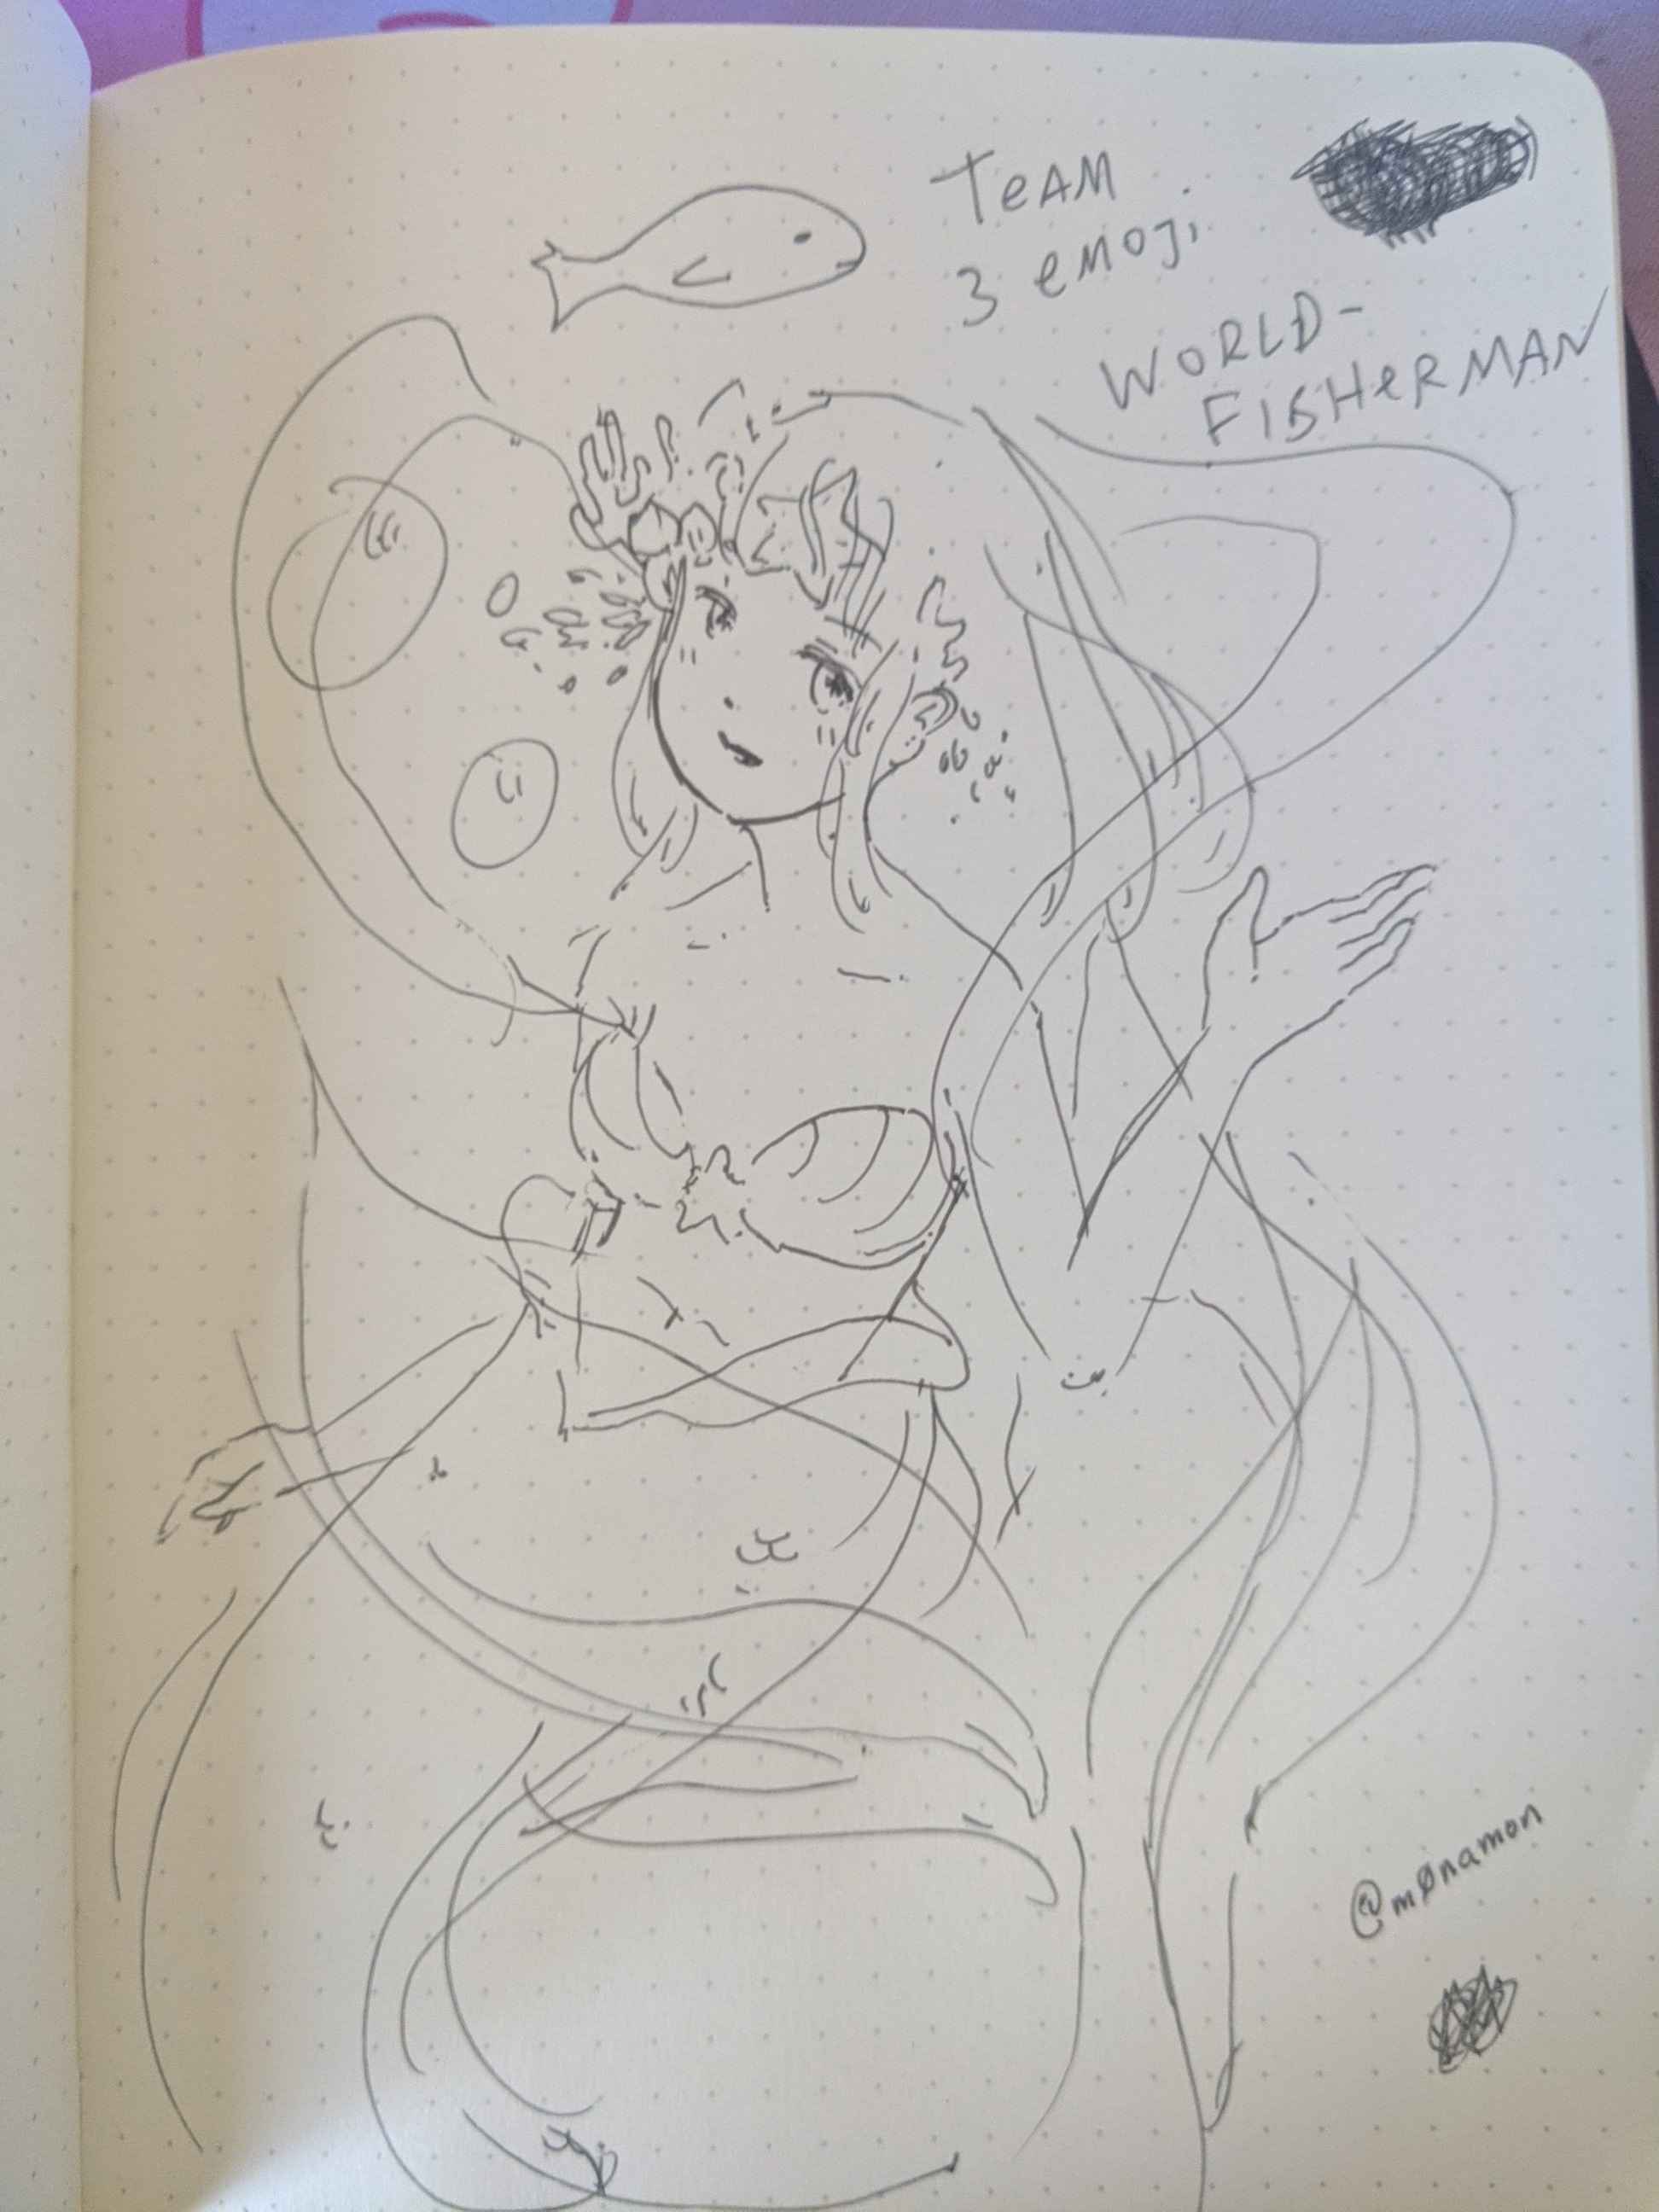 TeAM
3 emoji
WORLD-
FISHeRMAN
@mønamon